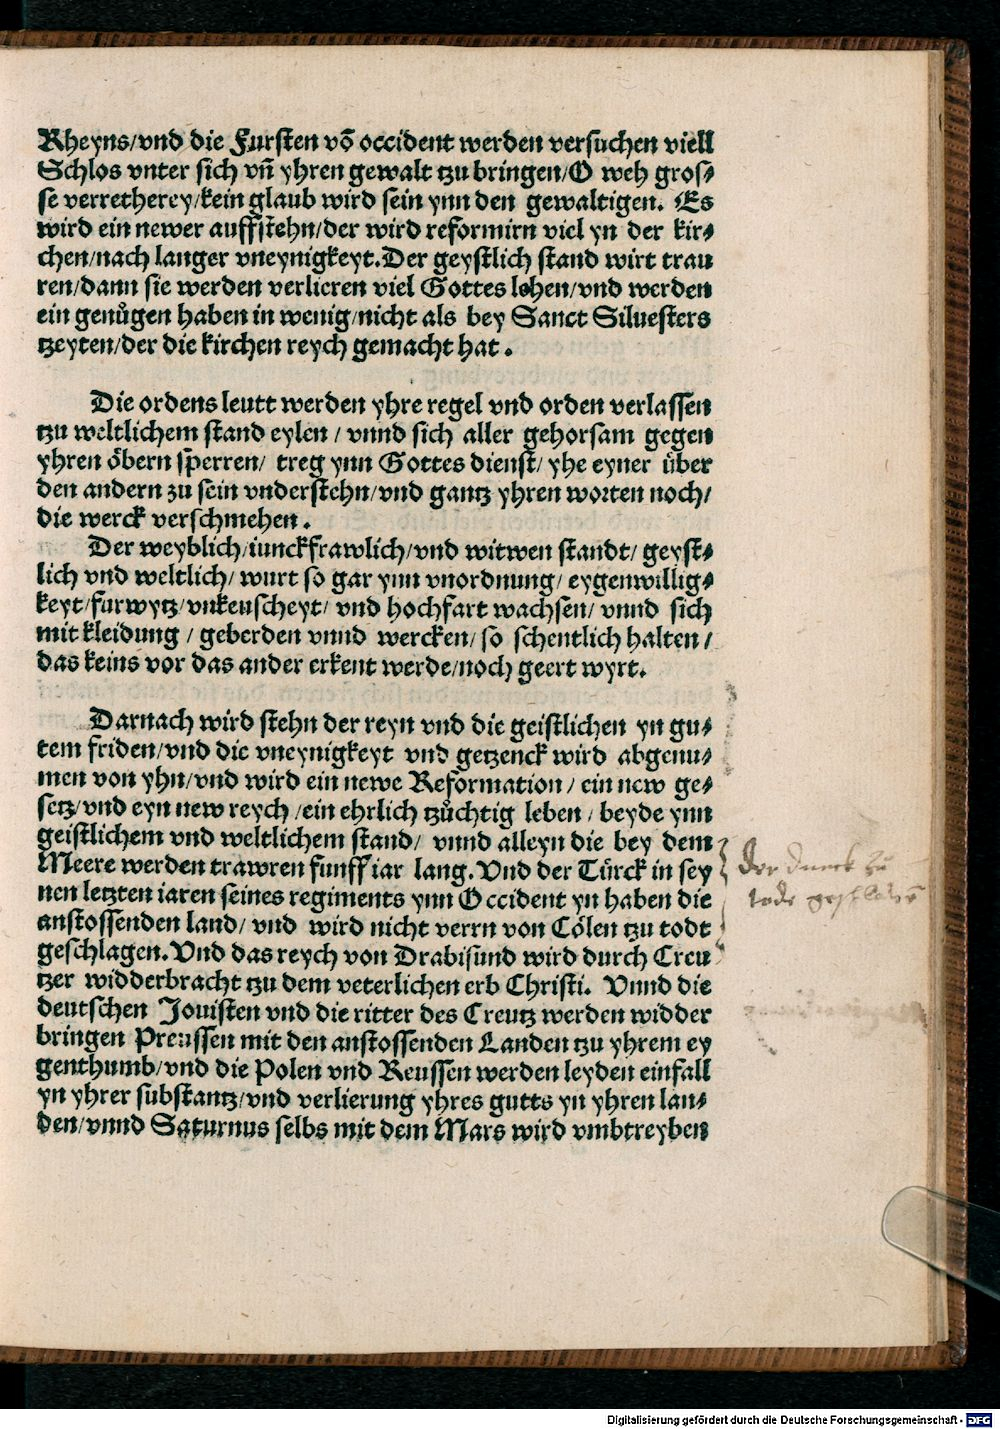 Rheyns/vnd die Fursten võ occident werden versuchen viell
Schlos vnter sich vñ yhren gewalt tzu bringen/O weh gros⸗
se verretherey/kein glaub wird sein ynn den gewaltigen. Es
wird ein newer auffstehn/der wird reformirn viel yn der kir⸗
chen/nach langer vneynigkeyt. Der geystlich stand wirt trau
ren/dann sie werden verlieren viel Gottes lehen/vnd werden
ein genůgen haben in wenig/nicht als bey Sanct Siluesters
tzeyten/der die kirchen reych gemacht hat.
Die ordens leutt werden yhre regel vnd orden verlassen
tzu weltlichem stand eylen/vnnd sich aller gehorsam gegen
yhren öbern sperren/ treg ynn Gottes dienst/yhe eyner über
den andern zu sein vnderstehn/vnd gantz yhren worten noch/
die werck verschmehen.
Der weyblich/iunckfrawlich/vnd witwen standt/ geyst⸗
lich vnd weltlich/ wurt so gar ynn vnordnung/ eygenwillig⸗
keyt/furwytz/vnkeuscheyt/ vnd hochfart wachsen/ vnnd sich
mit kleidung/ geberden vnnd wercken/so schentlich halten/
das keins vor das ander erkent werde/noch geert wyrt.
Darnach wird stehn der reyn vnd die geistlichen yn gu⸗
tem friden/vnd die vneynigkeyt vnd getzenck wird abgenu⸗
men von yhn/vnd wird ein newe Reformation/ ein new ge⸗
setz/vnd eyn new reych/ein ehrlich tzůchtig leben/ beyde ynn
geistlichem vnd weltlichem stand/ vnnd alleyn die bey dem
Meere werden trawren funff iar lang. Vnd der Türck in sey
nen letzten iaren seines regiments ynn Occident yn haben die
anstossenden land/ vnd wird nicht verrn von Cölen tzu todt
geschlagen. Vnd das reych von Drabisund wird durch Creu
tzer widderbracht tzu dem veterlichen erb Christi. Vnnd die
deutschen Jouisten vnd die ritter des Creutz werden widder
bringen Preussen mit den anstossenden Landen tzu yhrem ey
genthumb/vnd die Polen vnd Reussen werden leyden einfall
yn yhrer substantz/vnd verlierung yhres gutts yn yhren lan⸗
den/vnnd Saturnus selbs mit dem Mars wird vmbtreyben
Der zu
tode
Digitalisierung gefördert durch die Deutsche Forschungsgemeinschaft - DFG